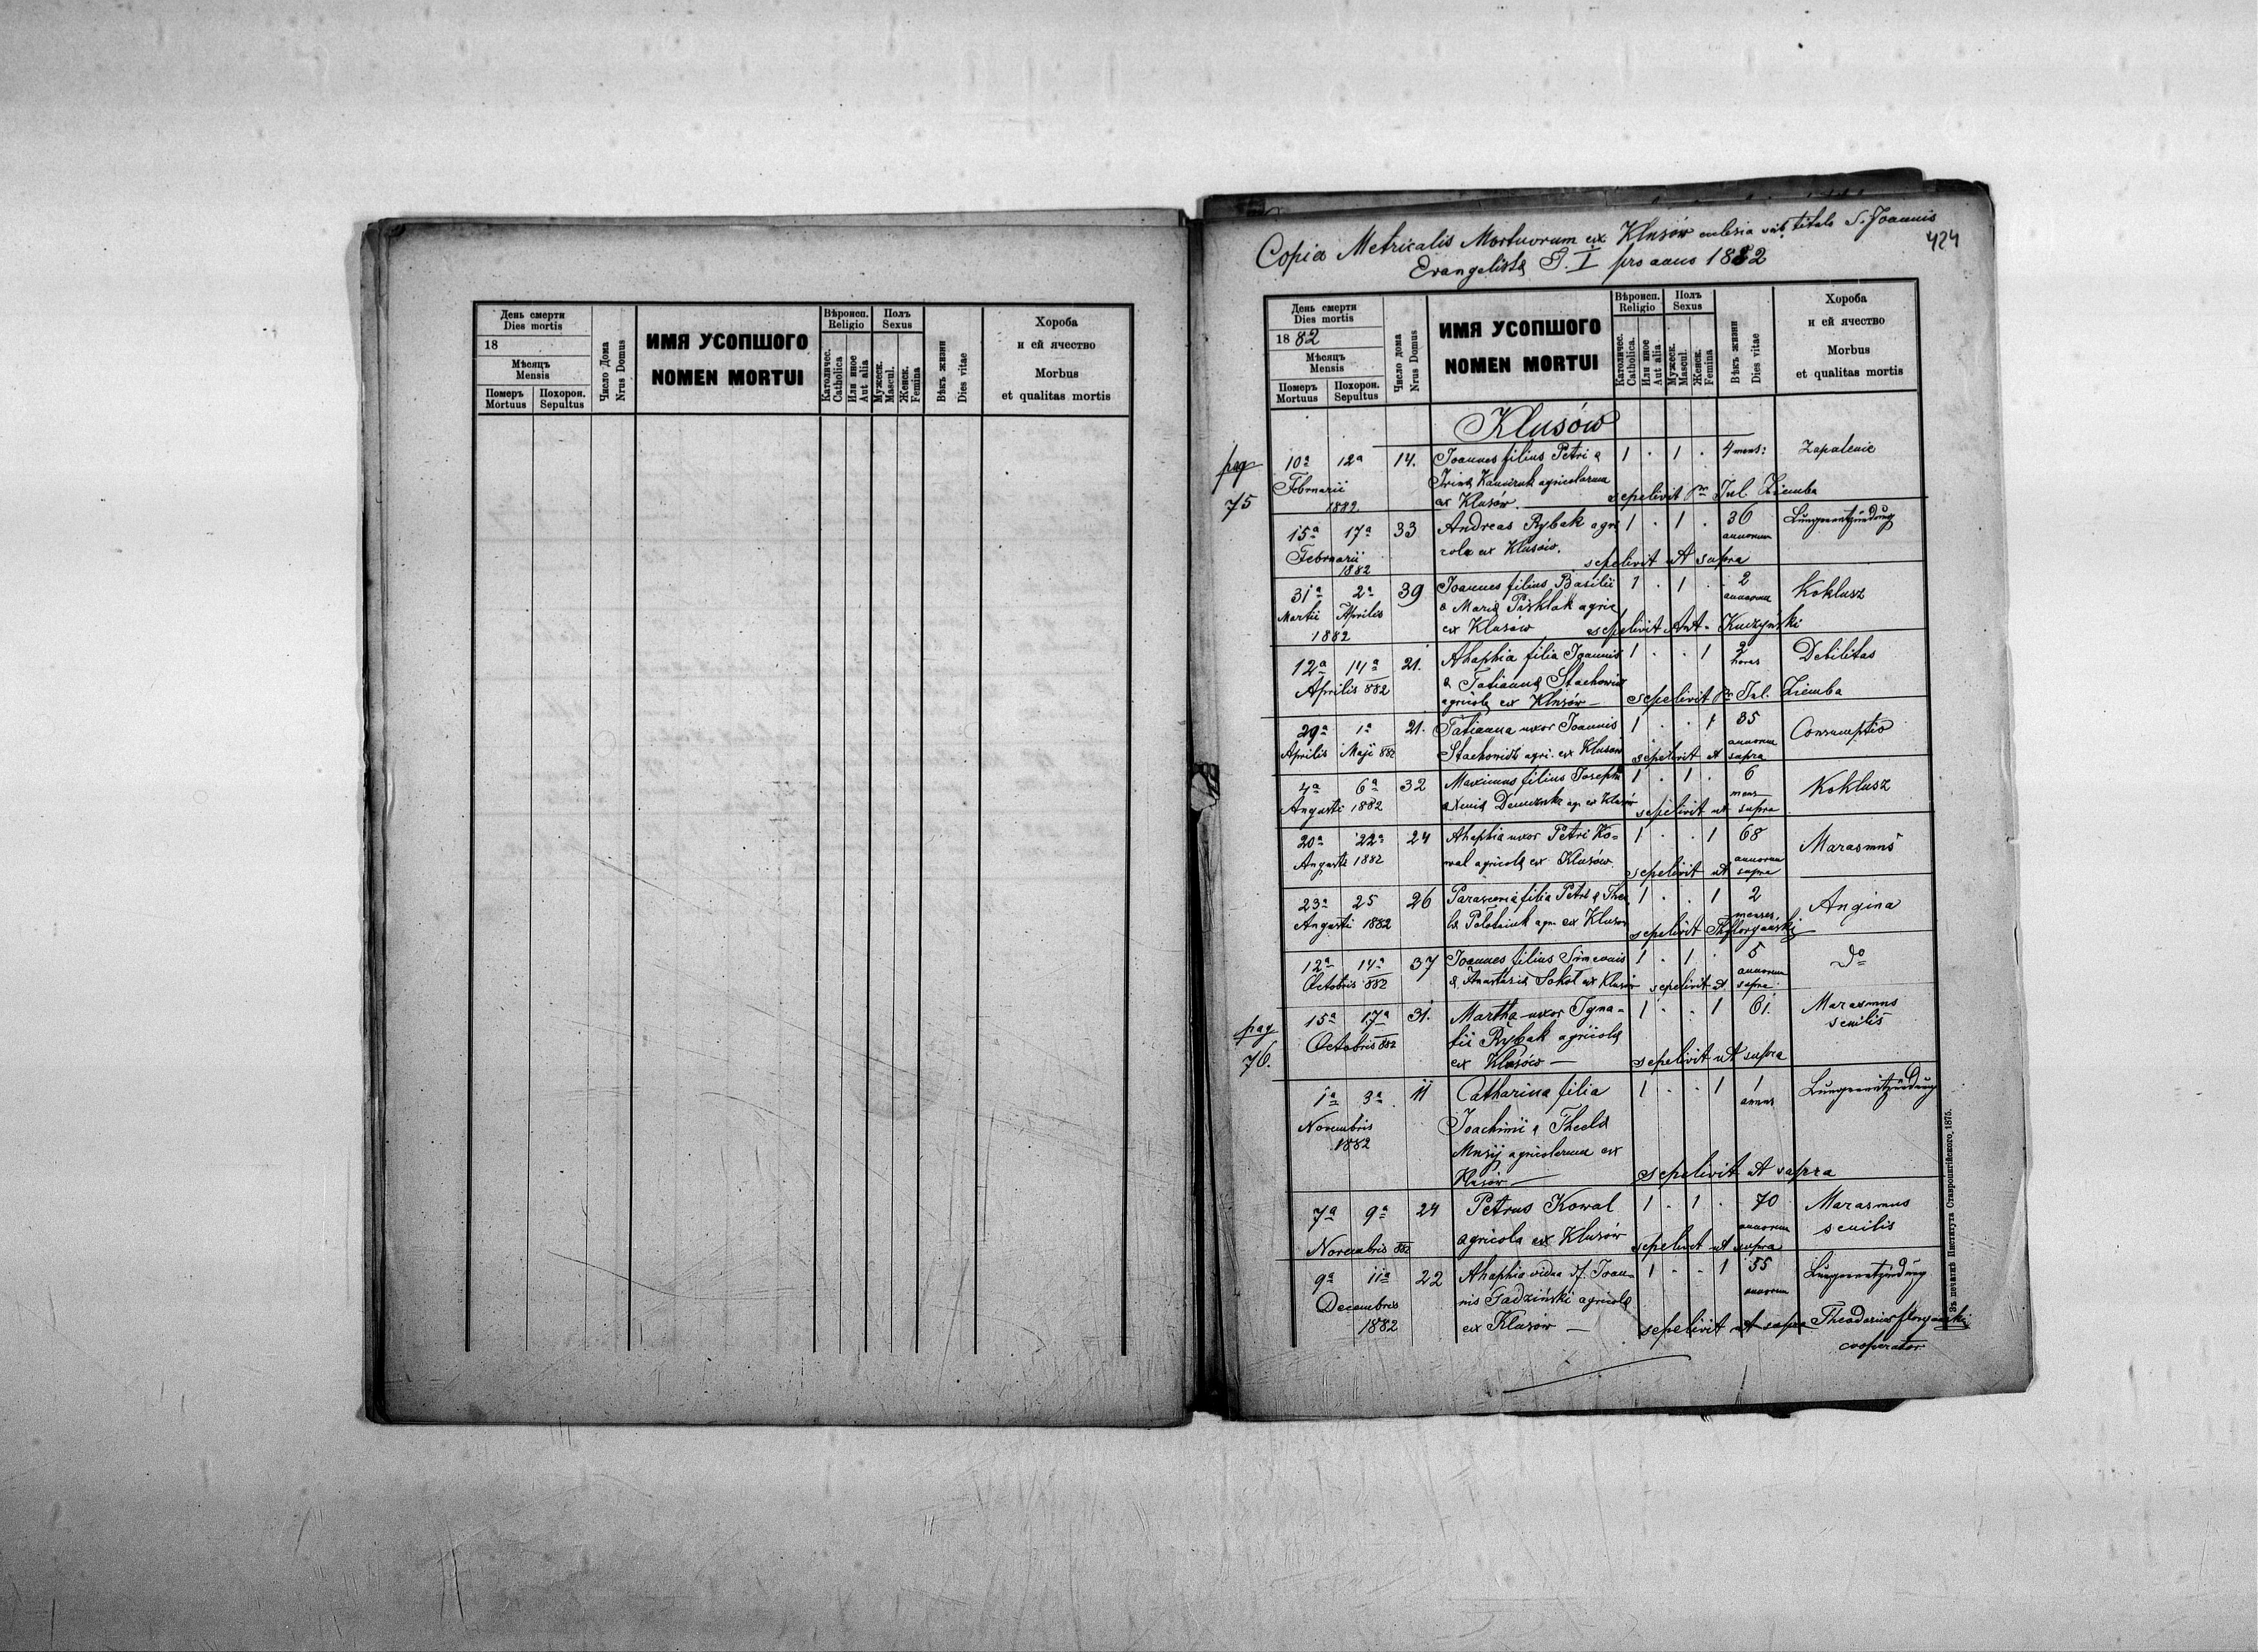 День смерти
Dies mortis
18
Мѣсяць
Mensis
Померъ
Mortuus
Похорон.
Sepultus
Число Дома
Nrus Domus
ИМЯ УСОПШОГО
NOMEN MORTUI
Вѣроисп.
Religio
Католичес.
Catholica
Или иное
Aut alia
Полъ
Sexus
Мужеск.
Mascul.
Женск.
Femina
Вѣкъ жизни
Dies vitae
Хороба
и ей ячество
Morbus
et qualitas mortis
Copia Metricalis Mortuorum ex Klusów titulo S. Joannis
424
Evangelistę T. I pro anno 1882
День смерти
Dies mortis
1882
Мѣсяць
Mensis
Померъ
Mortuus
Похорон.
Sepultus
Число дома
Nrus Domus
ИМЯ УСОПШОГО
NOMEN MORTUI
Вѣроисп.
Religio
Католичес.
Catholica.
Или иное
Aut alia
Полъ
Sexus
Мужеск.
Mascul.
Женск.
Femina
Вѣкъ жизни
Dies vitae
Хороба
и ей ячество
Morbus
et qualitas mortis
Klusów
pag
75
10a 12a 14. Joannes filius Petri & 1 . 1 . 4 mens: Zapalenie
Februarii Irinę agricolarum
1882 ex Klusów. sepelivit Jul Ziemba
15a 17a 33 Andreas Rybak agri 1 . 1 . 36 Lungenentzündung
Februarii cola ex Klusów. annorum
1882 sepelivit ut supra
31a 2a 39 Joannes filius Basilii 1 . 1 . 2 Koklusz
Martii Aprilis & Marię agric annorum
1882 ex Klusów sepelivit Ant. Kuczyński
12a 14a 21. Ahaphia filia Joannis 1 . . 1 2 horas Debilitas
Aprilis 882 & Tatiannę
agricolę ex Klusów — sepelivit Jul. Ziemba
29a 1a 21. Tatianna uxor Joannis 1 . . 1 35 Consumptio
Aprilis Maji 882 agri. ex Klusow annorum
sepelivit ut supra
4a 6a 32 Maximus filius Joseph 1 . 1 . 6 Koklusz
Augusti 1882 & Xenię ag. ex Klusów mens
sepelivit ut supra
20a 22a 24 Ahaphia uxor Petri Ko= 1 . . 1 68 Marasmus
Augusti 1882 wal agricolę ex Klusów annorum
sepelivit ut supra
23a 25 26 filia Petri & The 1 . . 1 2 Angina
Augusti 1882 agr. ex Klusow menses.
sepelivit
12a 14a 37 Joannes filius Simeonis 1 . 1 . 5 do
Octobris 882 & Anastasię Sokol ex Klusów annorum
sepelivit ut supra
pag
76.
15a 17a 31. Martha uxor Igna= 1 . . 1 61. Marasmus
Octobris 882 tii Rybak agricolę senilis
ex Klusów — sepelivit ut supra
1a 3a 11 Catharina filia 1 . . 1 1 Lungenentzündung
Novembris Joachimi & annus
1882 agricolarum ex
Klusów — sepelivit ut supra
7a 9a 24 Petrus Kowal 1 . 1 . 70 Marasmus
Novembris 882 agricola ex Klusów annorum senilis
sepelivit ut supra
9a 11a 22 Ahaphia vidua Joan= 1 . . 1 55 Lungenentzündung
Decembris nis Gadziński agricolę annorum
1882 ex Klusow — sepelivit ut supra Theodorius
cooperator
Зъ печатнѣ Института Ставропигійского, 1875.